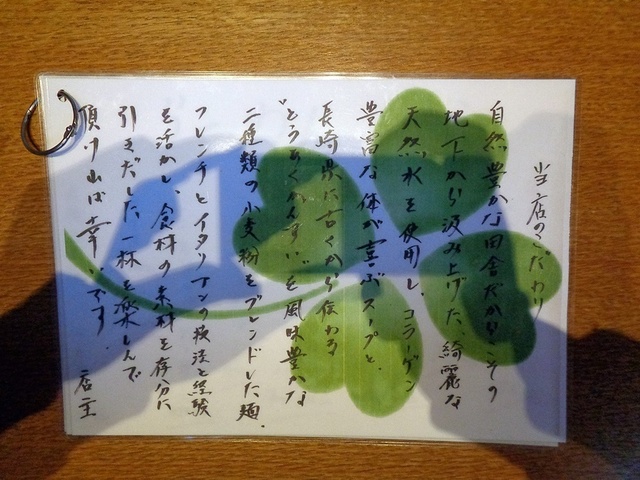 当店のこだわり
自然豊かな田舎だからこその
地下から汲み上げた、綺麗な
天然水を使用し、コラーゲン
豊富な体が喜ぶスープと、
長崎県に古くから伝わる
"とうあくかんすい"を風味豊かな
二種類の小麦粉をブレンドした麺。
フレンチとイタリアンの技法と経験
を活かし、食材の素材を存分に
引きだした一杯を楽しんで
頂ければ幸いです。
店主